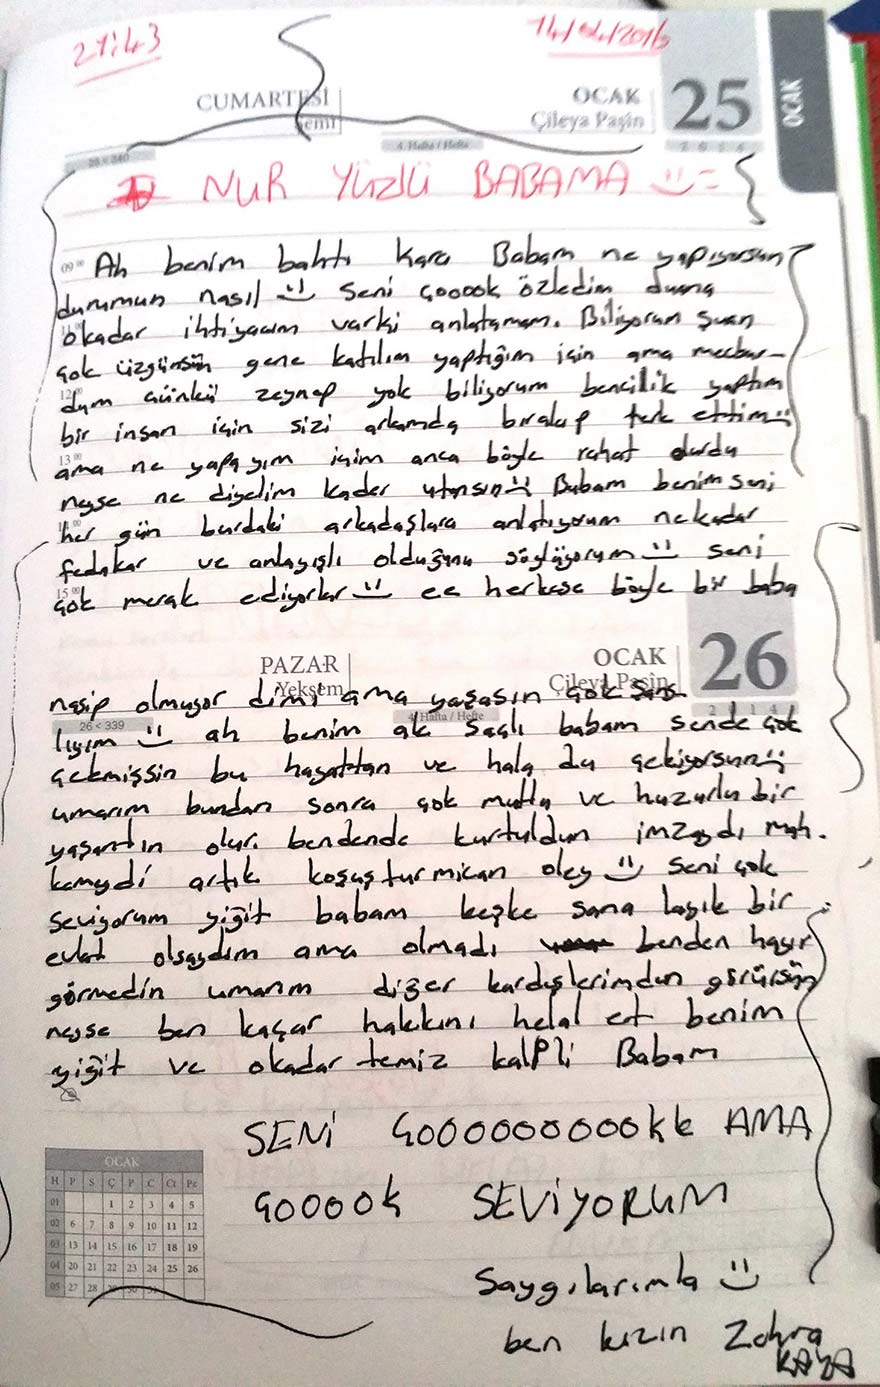 21:43
14/04/2016
CUMARTESİ
Şemî
OCAK
Çileya Paşîn
25
OCAK
2 0 1 4
25 < 340
4. Hafta / Hefte
NUR YÜZLÜ BABAMA
09:00 Ah benim bahtı kara Babam ne yapıyorsun?
durumun nasıl seni çooook özledim duana
okadar ihtiyacım varki anlatamam. Biliyorum şuan
çok üzgünsün gene katılım yaptığım için ama mecbur-
dum çünkü zeynep yok biliyorum bencilik yaptım
12:00
bir insan için sizi arkamda bırakıp terk ettim
13:00
ama ne yapayım içim anca böyle rahat durdu
neyse ne diyelim kader utansın Babam benim seni
her gün burdaki arkadaşlara anlatıyorum nekadar
fedakar ve anlayışlı olduğunu söylüyorum seni
15:00
çok merak ediyorlar ee herkese böyle bir baba
PAZAR
Yekşem
OCAK
Çileya Paşîn
26
2 0 1 4
nasip olmuyor dimi ama yaşasın çok şans-
26 < 339
4. Hafta / Hefte
lıyım ah benim ak saçlı babam sende çok
çekmişsin bu hayattan ve hala da çekiyorsun
umarım bundan sonra çok mutlu ve huzurlu bir
yaşantın olur. bendende kurtuldun imzaydı mah-
kemeydi artık koşuşturmican oley seni çok
seviyorum yiğit babam keşke sana layık bir
evlat olsaydım ama olmadı benden hayır
görmedin umarım diğer kardeşlerimden görürsün
neyse ben kaçar hakkını helal et benim
yiğit ve okadar temiz kalpli Babam
SENİ ÇOOOOOOOOOOkk AMA
ÇOOOOk SEVİYORUM
Saygılarımla
ben kızın Zohra
KAYA
OCAK
H P S Ç P C Ct Pz
01 1 2 3 4 5
02 6 7 8 9 10 11 12
03 13 14 15 16 17 18 19
04 20 21 22 23 24 25 26
05 27 28 29 30 31